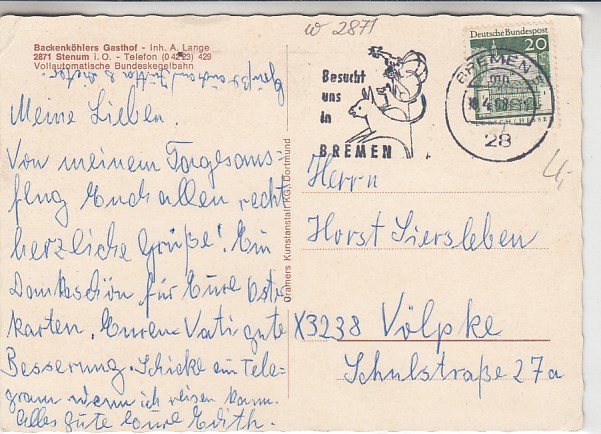 w 2871
Backenköhlers Gasthof - Inh. A. Lange
2871 Stenum i. O. - Telefon (0 42 23) 429
Vollautomatische Bundeskegelbahn
Meine Lieben.
Von meinem Tagesaus-
flug Euch allen recht
herzliche Grüße! Ein
Dankeschön für Eure Oster
karten. Euren Vati gute
Besserung. Schicke ein Tele-
gram wenn ich reisen kann.
Alles gute Eure Edith.
Cramers Kunstanstalt KG, Dortmund
Besucht
uns
in
BREMEN
BREMEN 5
28
Deutsche Bundespost
20
Herrn
Horst Siersleben
X3238 Völpke
Schulstraße 27a